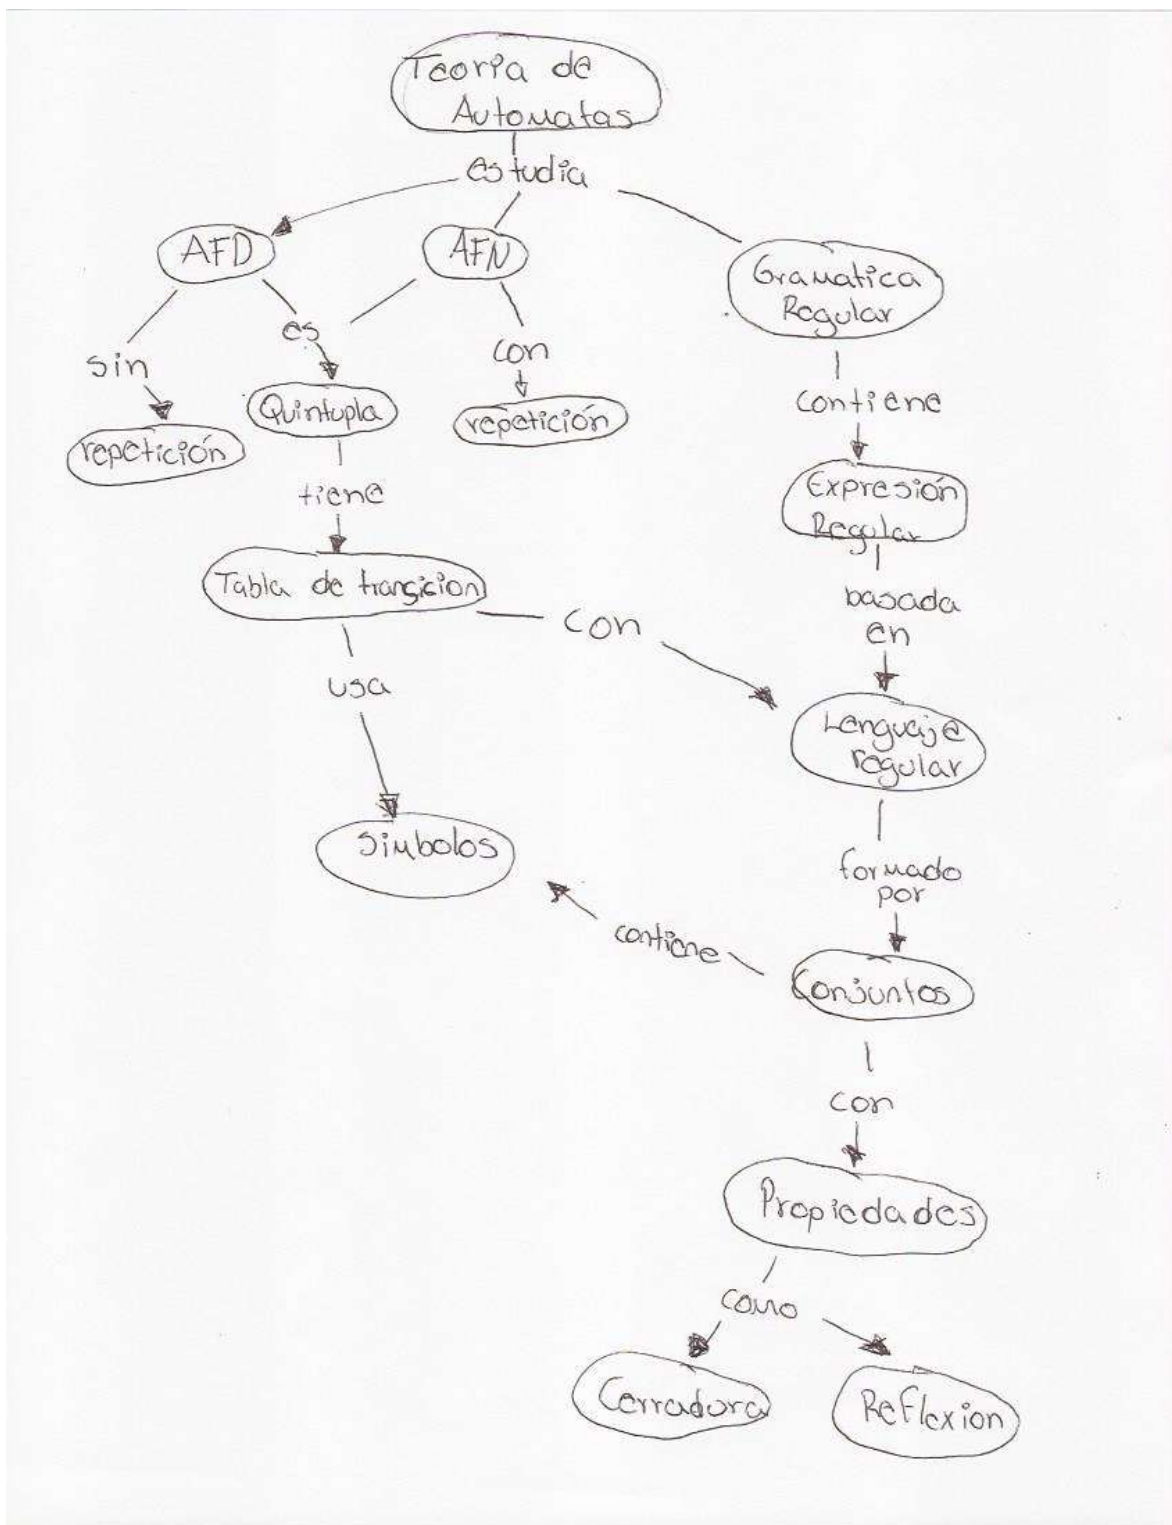 Teoria de
Automatas
estudia
AFD
AFN
Gramatica
Regular
sin
es
con
contiene
repetición
Quintupla
repetición
tiene
Expresión
Regular
Tabla de transicion
con
basada
en
usa
Lenguaje
regular
Simbolos
formado
por
contiene
Conjuntos
con
Propiedades
como
Cerradura
Reflexion